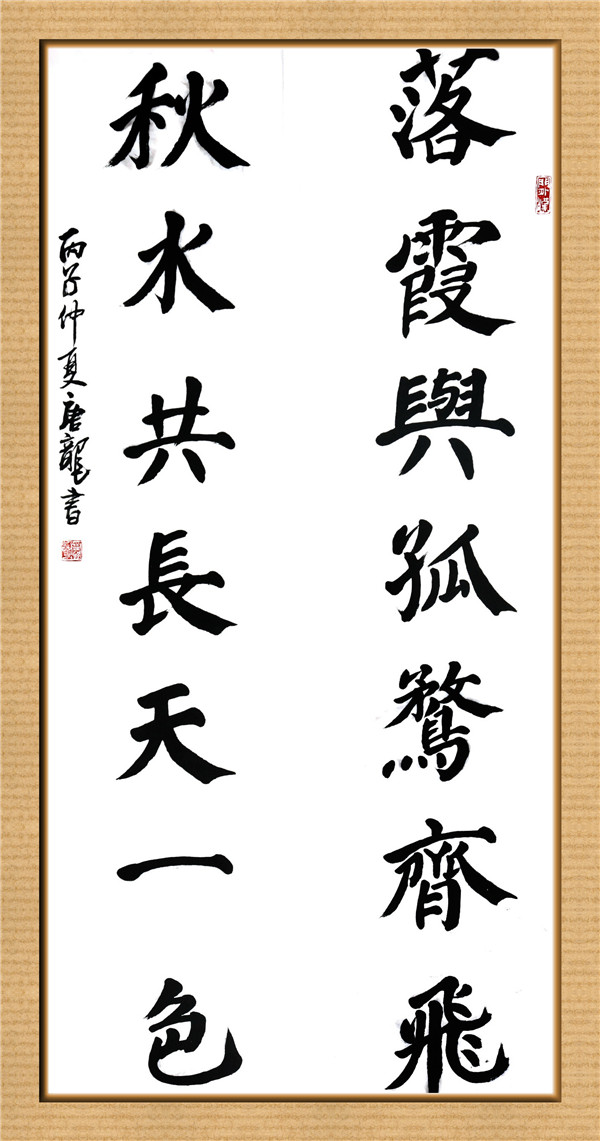 落霞與孤鶩齊飛
秋水共長天一色
丙子仲夏唐龍書